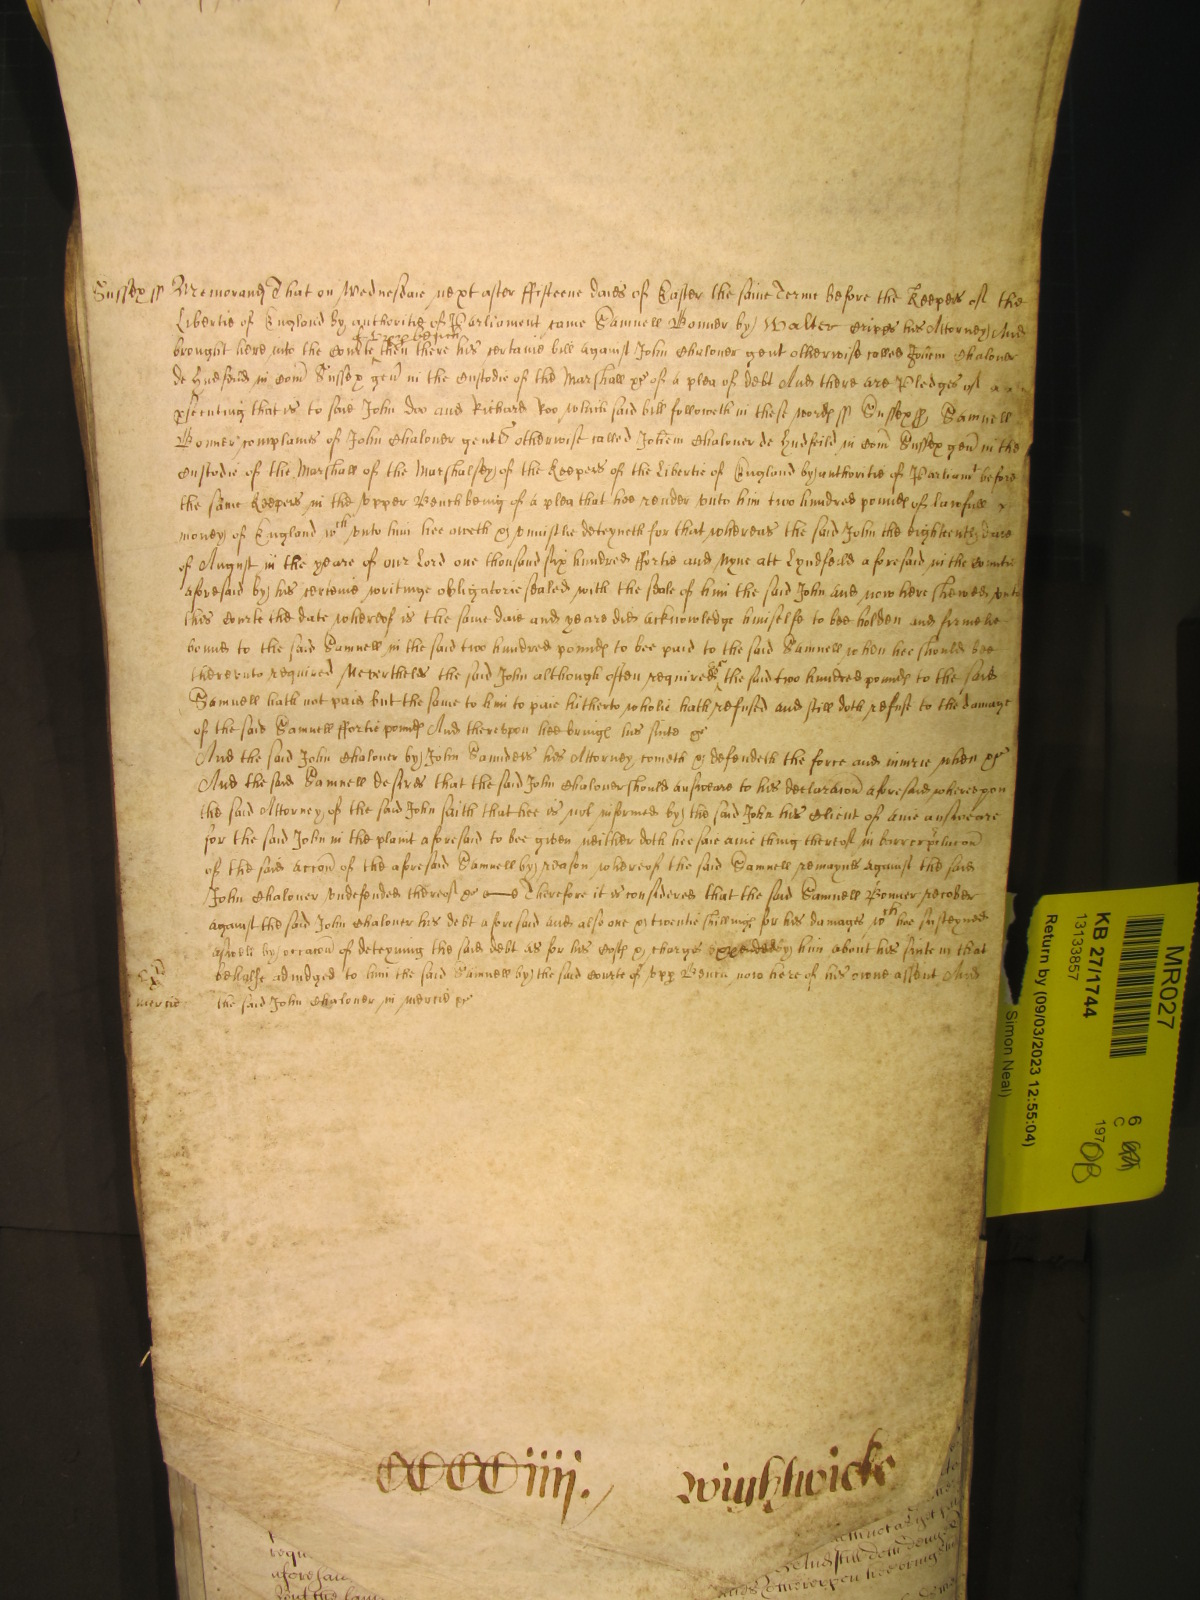 Sussex ss Memorand That on Wednesdaie next after ffifteene daies of Easter the same Terme before the Keepers of the
Libertie of England by authoritie of Parliament came Samuell Bonner by Walter his Attorney And
in the upper bench
brought here into the Courte then there his certaine bill against John Chaloner gent otherwise called Johem Chaloner
de Lyndfeild in Com Sussex gen in the Custodie of the Marshall &c of a plea of debt And there are Pledges of
psecuting that is to saie John Doo and Richard Roo which said bill followeth in these words ss Sussex ss Samuell
Bonner complaines of John Chaloner gent otherwise called Johem Chaloner de Lyndfeild in Com Sussex gen in the
Custodie of the Marshall of the Marshalsey of the Keepers of the Libertie of England by authoritie of Parliamt before
the same Keepers in the upper Bench being of a plea that hee render unto him two hundred pounds of lawfull
money of England wth unto him hee oweth & uniustlie deteyneth for that whereas the said John the eighteenth daie
of August in the yeare of our Lord one thousand six hundred ffortie and Nyne att Lyndfeild aforesaid in the Countie
aforesaid by his certaine writinge obligatorie sealed with the seale of him the said John and now here shewed unto
this Courte the date whereof is the same daie and yeare did acknowledge himselfe to bee holden and firmelie
bound to the said Samuell in the said two hundred pounds to bee paid to the said Samuell when hee should bee
thereunto required Neverthels the said John although often required &c the said two hundred pounds to the said
Samuell hath not paid but the same to him to paie hitherto wholie hath refused and still doth refuse to the damage
of the said Samuell ffortie pounds And thereupon hee brings his suite &c
And the said John Chaloner by John Saunders his Attorney cometh & defendeth the force and iniurie when &c
And the said Samuell desires that the said John Chaloner should answeare to his declaracon aforesaid whereupon
the said Attorney of the said John saith that hee is not informed by the said John his Client of anie answeare
for the said John in the plaint aforesaid to bee given neither doth hee saie anie thing thereof in
of the said accon of the aforesaid Samuell by reason whereof the said Samuell remaynes against the said
John Chaloner undefended thereof &c Therefore it is considered that the said Samuell Bonner recover
against the said John Chaloner his debt aforesaid and also one & twentie shillings for his damages wch hee susteyned
aswell by occacon of deteyning the said debt as for his Costs & charges expended by him about his suite in that
behalfe adiudged to him the said Samuell by the said Courte of upp Bench now here of his owne assent And
mercie the said John Chaloner in mercie &c
CCCCiiij.
Wightwicke
MR027
KB 27/1744
13133857
Return by (09/03/2023 12:55:04)
Simon Neal)
6
C
197